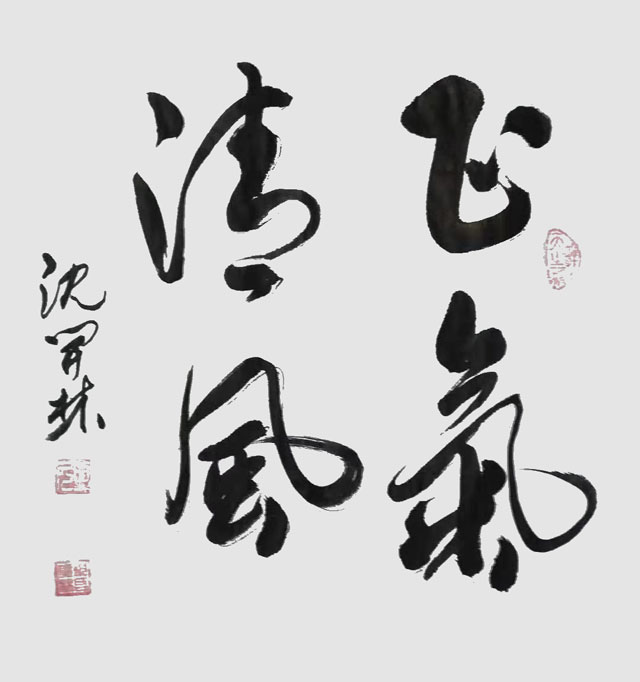 正氣
清風
沈開林